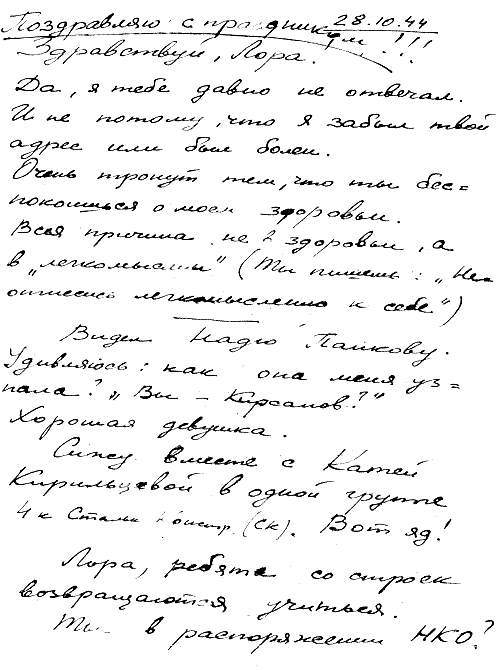 Поздравляю с праздником!!! 28.10.44
Здравствуй, Лора.
Да, я тебе давно не отвечал.
И не потому, что я забыл твой
адрес или был болен.
Очень тронут тем, что ты бес=
покоишься о моем здоровьи.
Вся причина не в здоровьи, а
в „легкомыслии" (Ты пишешь: „Не
отнесись легкомысленно к себе")
Видел Надю Панкову.
Удивляюсь: как она меня уз=
нала? „Вы – Кирсанов?"
Хорошая девушка.
Сижу вместе с Катей
Кирильцевой в одной группе
4 к Сталь (СК). Вот яд!
Лора, ребята со строек
возвращаются учиться.
Ты в распоряжении НКО?